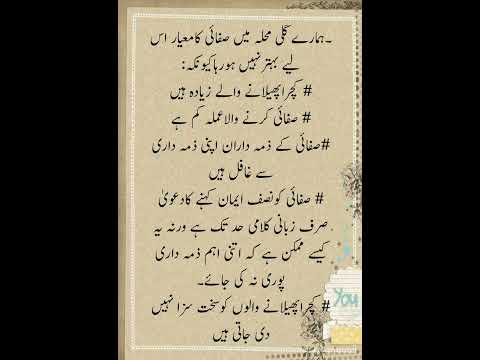 ۔ہمارے گلی محلہ میں صفائی کا معیار اس
لیے بہتر نہیں ہو رہا کیونکہ:
# کچرا پھیلانے والے زیادہ ہیں
# صفائی کرنے والا عملہ کم ہے
#صفائی کے ذمہ داران اپنی ذمہ داری
سے غافل ہیں
# صفائی کو نصف ایمان کہنے کا دعویٰ
صرف زبانی کلامی حد تک ہے ورنہ یہ
کیسے ممکن ہے کہ اتنی اہم ذمہ داری
پوری نہ کی جائے۔
# کچرا پھیلانے والوں کو سخت سزا نہیں
دی جاتی ہیں
You